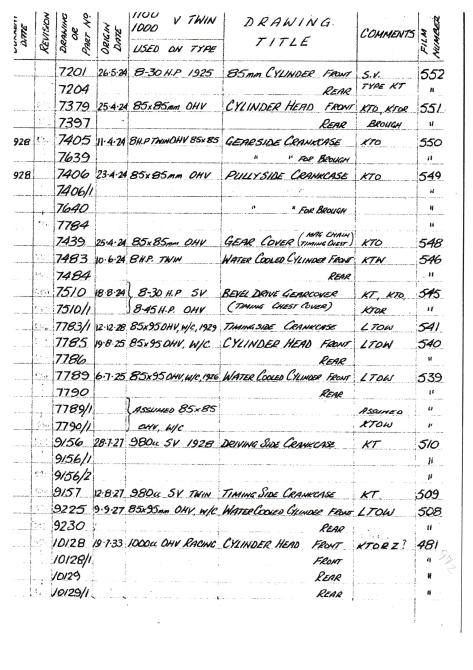 CURRENT DATE REVISION DRAWING OR PART Nº ORIGIN DATE 1100 1000 V TWIN USED ON TYPE DRAWING TITLE COMMENTS FILM NUMBER
7201 26-5-24 8-30 H.P 1925 85mm CYLINDER FRONT S.V. TYPE KT 552
7204 REAR "
7379 25-4-24 85x85mm OHV CYLINDER HEAD FRONT KTO, KTOR 551
7397 REAR BROUGH "
928 7405 11-4-24 8H.P TWIN OHV 85x85 GEARSIDE CRANKCASE KTO 550
7639 " " FOR BROUGH "
928 7406 23-4-24 85x85mm OHV PULLYSIDE CRANKCASE KTO 549
7406/1 "
7640 " " FOR BROUGH "
7784 "
7439 25-4-24 85x85mm OHV GEAR COVER (MAG CHAIN) (TIMING CHEST) KTO 548
7483 10-6-24 8 H.P. TWIN WATER COOLED CYLINDER FRONT KTW 546
7484 REAR "
7510 18-8-24 8-30 H.P SV BEVEL DRIVE GEARCOVER KT, KTO, 545
7510/1 8-45 H.P. OHV (TIMING CHEST COVER) KTOR "
7783/1 12-12-28 85x95 OHV, W/C, 1929 TIMINGSIDE CRANKCASE LTOW 541
7785 19-8-25 85x95 OHV, W/C CYLINDER HEAD FRONT LTOW 540
7786 REAR "
7789 6-7-25 85x95 OHV, W/C, 1926 WATER COOLED CYLINDER FRONT LTOW 539
7790 REAR "
7789/1 ASSUMED 85x85 ASSUMED "
7790/1 OHV, W/C KTOW "
9156 28-7-27 980cc SV 1928 DRIVING SIDE CRANKCASE KT 510
9156/1 "
9156/2 "
9157 12-8-27 980cc SV TWIN TIMING SIDE CRANKCASE KT. 509
9225 9-9-27 85x95mm OHV, W/C WATER COOLED CYLINDER FRONT LTOW 508
9230 REAR "
10128 19-7-33 1000cc OHV RACING CYLINDER HEAD FRONT KTORZ? 481
10128/1 FRONT "
10129 REAR "
10129/1 REAR "